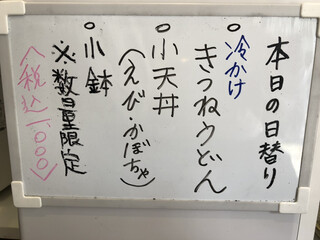 本日の日替り
○冷かけ
きつねうどん
○小天丼
(えび・かぼちゃ)
○小鉢
※数量限定
(税込一、〇〇〇)